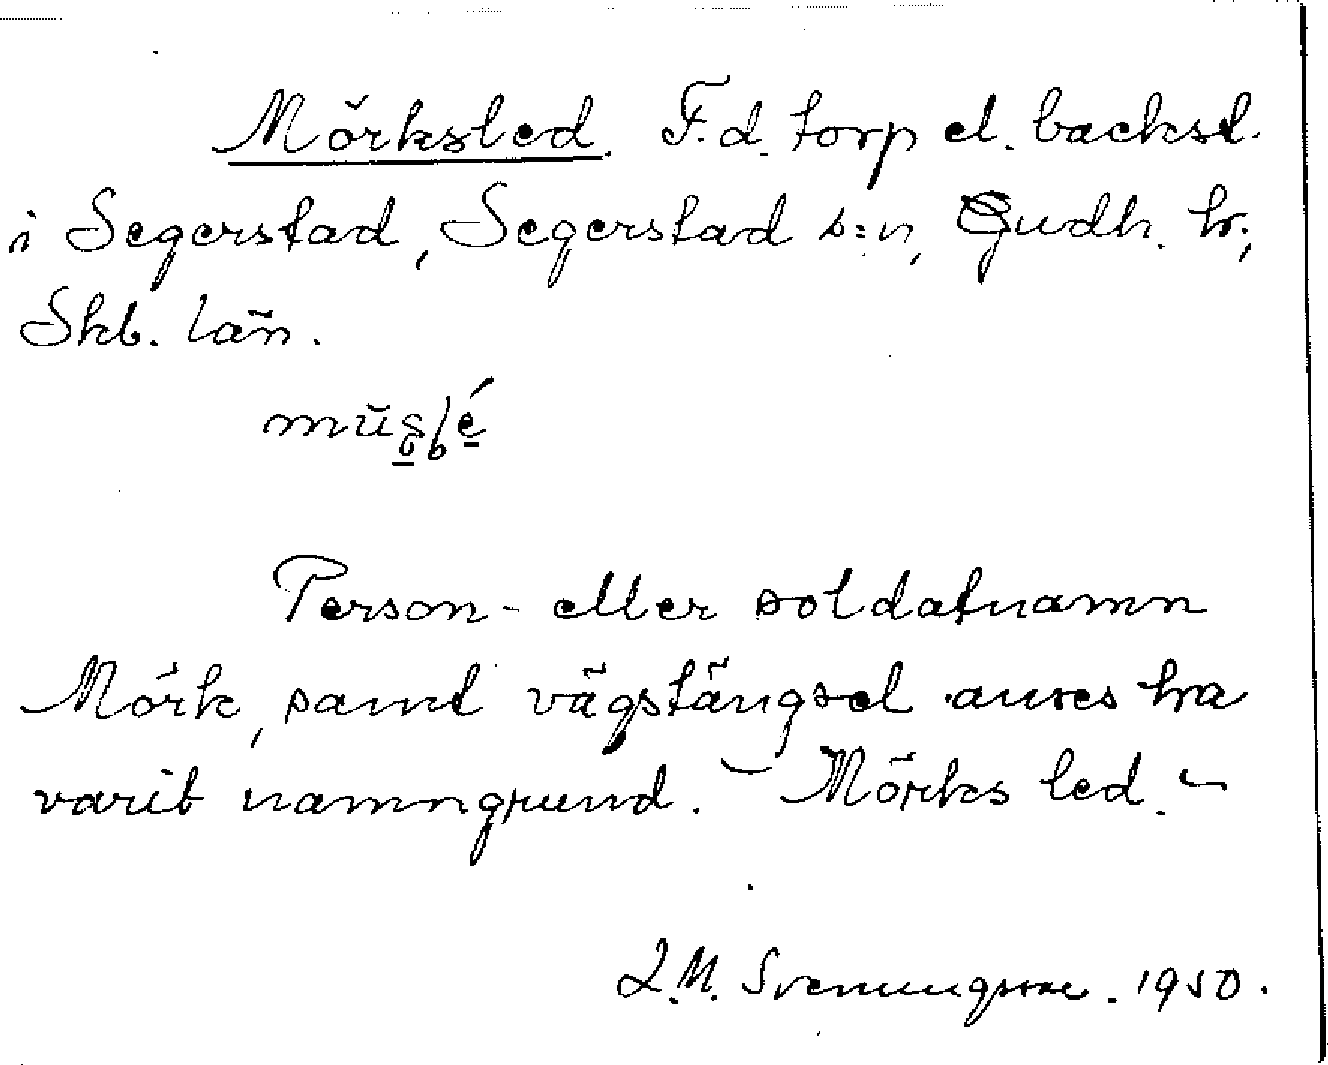 Mörksled. F.d. torp el. backst.
i Segerstad, Segerstad s:n, Gudh. hr,
Skb. län.
Person- eller soldatnamn
Mörk, samt vägstängsel anses ha
varit namngrund. — Mörks led. —
L.M. Svenungsson. 1950.